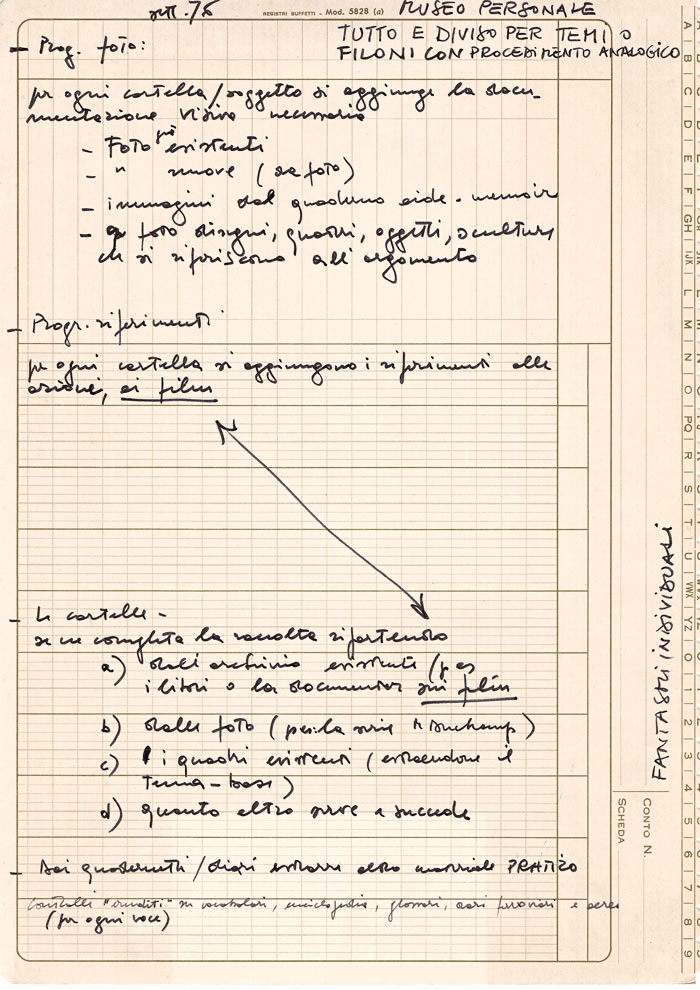 sett. 75
REGISTRI BUFFETTI - Mod. 5828 (a)
MUSEO PERSONALE
TUTTO È DIVISO PER TEMI O
FILONI CON PROCEDIMENTO ANALOGICO
- Prog. foto:
per ogni cartella/soggetto si aggiunge la docu-
mentazione visiva necessaria
- Foto già esistenti
- " nuove (da foto)
- immagini dal quaderno aide-memoir
- foto disegni, quadri, oggetti, sculture
che si riferiscono all'argomento
- Progr. riferimenti
per ogni cartella si aggiungono i riferimenti alle
azioni, ai film
- Le cartelle -
se ne completa la raccolta ripartendo
a) dall'archivio esistente (p es
i libri o la documentaz sui film
b) dalle foto (per la serie M Duchamp)
c) i quadri esistenti (estraendone il
tema-base)
d) quanto altro serve e succede
- Dai quadernetti/diari estrarre altro materiale PRATICO
Controlli "eruditi" su vocabolari, enciclopedia, glossari, orari ferroviari e aerei
(per ogni voce)
FANTASMI INDIVIDUALI
CONTO N.
SCHEDA
A B C D E F GH IJK L M N O PQ R S T U VWX YZ 0 1 2 3 4 5 6 7 8 9